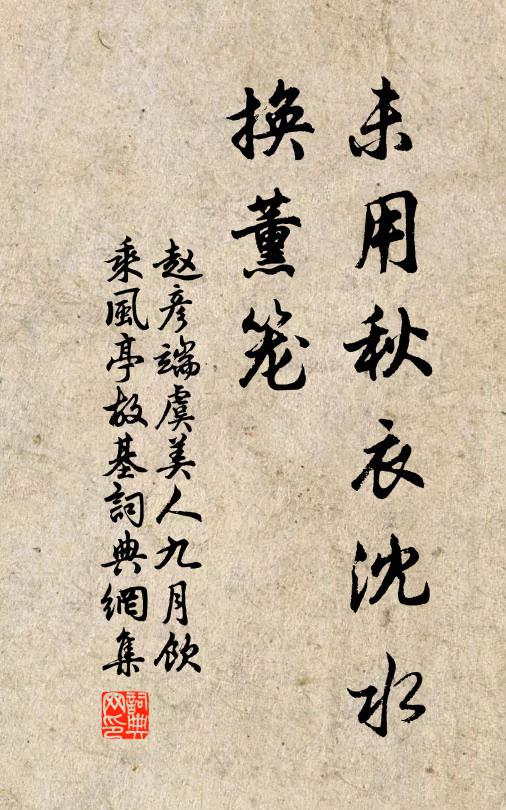 未用秋衣沈水
换薰笼
赵彦端虞美人九月饮
乘風亭故基詞典網集
詞典
网印